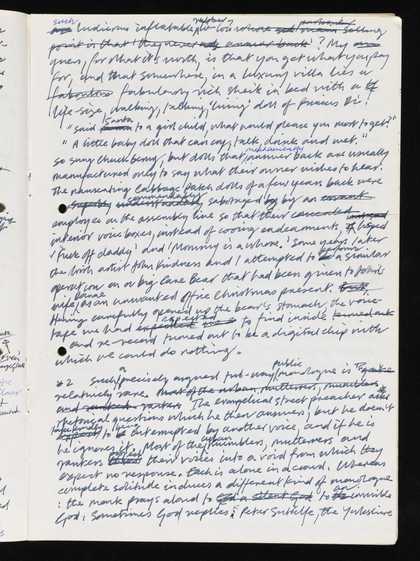 such ludicrous inflatable, rubber love whose probably main selling
point is that they never answer back? My
guess, for what it's worth, is that you get what you pay
for, and that somewhere, in a luxury villa lies a
fabulous fabulously rich sheik in bed with a
life-size, walking, talking, 'living' doll of Princess Di!
"Said Santa to a girl child, what would please you most to get?"
"A little baby doll that can cry, talk, drink and wet."
so sung Chuck Berry, but dolls that mechanically answer back are usually
manufactured only to say what their owner wishes to hear.
The nauseating Cabbage Patch dolls of a few years back were
sabotaged by an
employee on the assembly line so that their concealed
interior voice boxes, instead of cooing endearments, lisped
'Fuck off daddy' and 'Mommy is a whore.' Some years later
the Irish artist John Kindness and I attempted to perform a similar
operation on a big Care Bear that had been given to John's
wife as an unwanted office Christmas present.
Having carefully opened up the bear's stomach the voice-
tape we had expected to find inside
and re-record turned out to be a digital chip with
which we could do nothing.
*2 Such a precisely argued public monologue is
relatively rare. most of the urban mutterers, mumblers
and ranters. The evangelical street preacher asks
rhetorical questions which he then answers, but he doesn't
to be interrupted by another voice, and if he is
he ignores it. Most of the urban mumblers, mutterers and
ranters project their voices into a void from which they
expect no response. Each is alone in a crowd. Whereas
complete solitude induces a different kind of monologue
: the monk prays aloud to God a silent God to an invisible
God. Sometimes God replies: Peter Sutcliffe, the Yorkshire